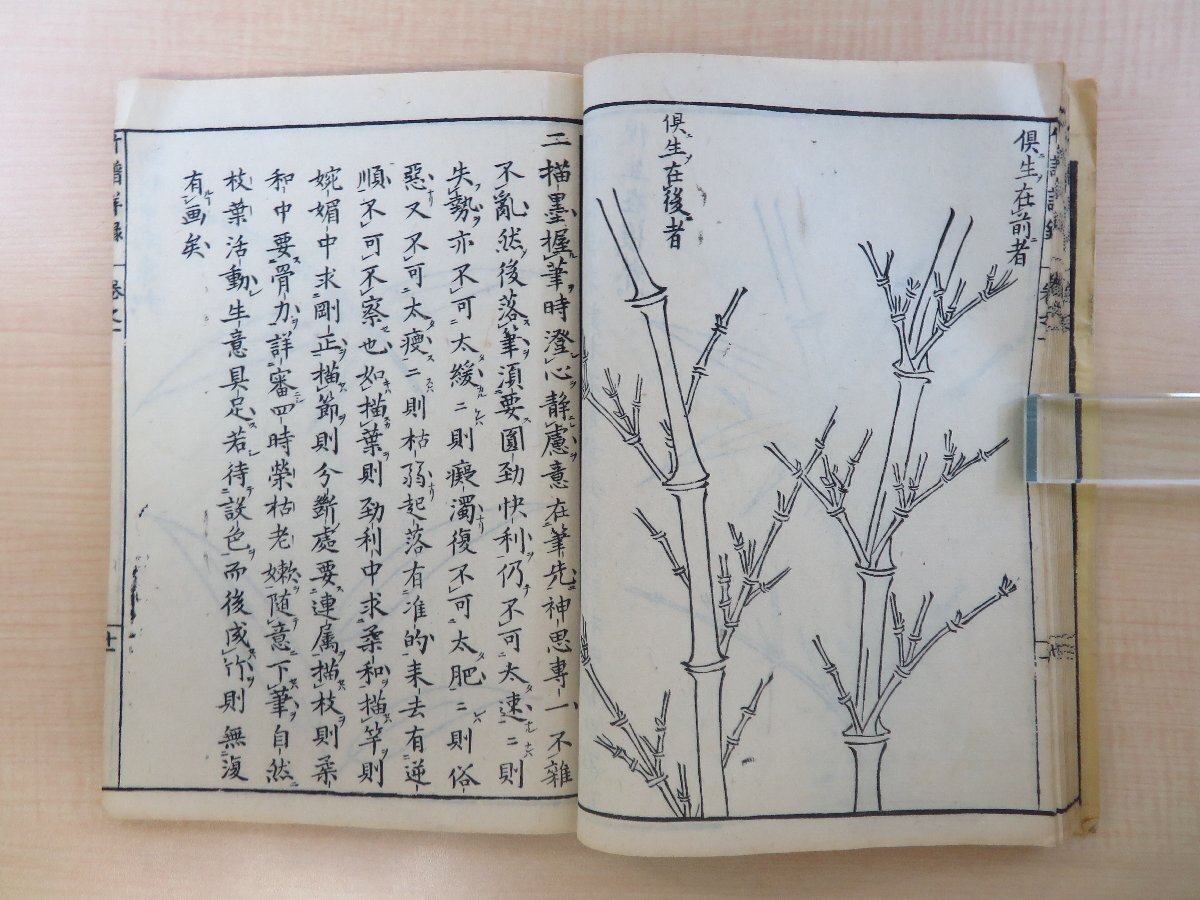 俱生在前者
俱生在後者
二描墨握筆時澄心靜慮意在筆先神思專一不雜
不亂然後落筆須要圓勁快利仍不可太速二則
失勢亦不可太緩二則癡濁復不可太肥二則俗
惡又不可太瘦二則枯弱起落有准的来去有逆
順不可不察也如描葉則勁利中求柔和描竿則
婉媚中求剛正描節則分斷處要連属描枝則柔
和中要骨力詳審四時榮枯老嫩随意下筆自然
枝葉活動生意具足若待設色而後成竹則無復
有画矣
竹譜詳録